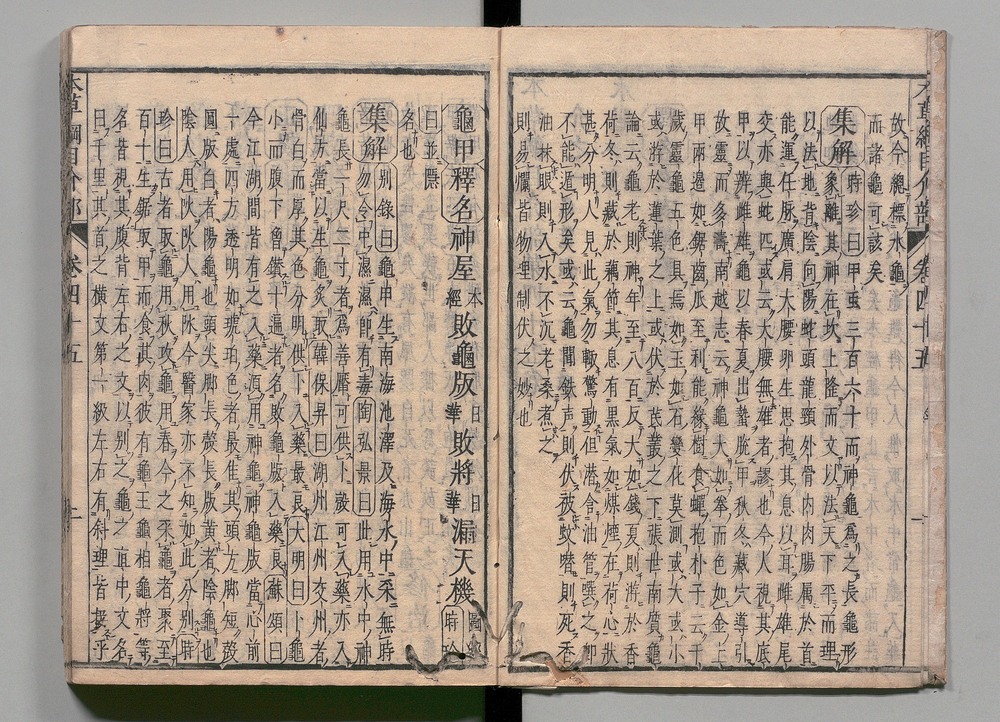 本草綱目介部 卷四十五 一
故今總標水龜
而諸龜可該矣
集解時珍曰甲虫三百六十而神龜爲之長龜形
象離其神在坎上隆而文以法天下平而理
以法地背陰向陽蛇頭龍頸外骨内肉腸属於首
能運任脉廣肩大腰卵生思抱其息以耳雌雄尾
交亦與蛇匹或云大腰無雄者謬也今人視其底
甲以辨雌雄龜以春夏出蟄脫甲秋冬藏穴導引
故靈而多壽南越志云神龜大如拳而色如金上
甲兩邊如鋸齒爪至利能緣樹食蟬抱朴子云千
歲靈龜五色具焉如玉如石變化莫測或大或小
或游於蓮葉之上或伏於蓍叢之下張世南質龜
論云龜老則神年至八百反大如錢夏則游於香
荷冬則藏於藕節其息有黒氣如煤烟在荷心狀
甚分明人見此氣勿輒驚動但潜含油管噀之即
不能遁形矣或云龜聞鉄声則伏被蚊噆則死香
油抹眼則入水不沉老桑煮之
則易爛皆物理制伏之妙也
龜甲釋名神屋本經敗龜版日華敗將日華漏天機圖經時珍
曰並隱
名也
集解别錄曰龜甲生南海池澤及海水中采無時
勿令中濕濕即有毒陶弘景曰此用水中神
龜長一尺二寸者爲善厴可供卜殼可入藥亦入
仙方當以生龜炙取韓保昇曰湖州江州交州者
骨白而厚其色分明供卜入藥最良大明曰卜龜
小而腹下曾鑽十遍者名敗龜版入藥良蘇頌曰
今江湖間皆有之入藥須用神龜神龜版當心前
一處四方透明如琥珀色者最佳其頭方脚短殼
圓版白者陽龜也頭尖脚長殼長版黄者陰龜也
陰人用陽陽人用陰今醫家亦不知如此分別時
珍曰古者取龜用秋攻龜用春今之采龜者聚至
百十生鋸取甲而食其肉彼有龜王龜相龜將等
名昔視其腹背左右之文以别之龜之直中文名
曰千里其首之横文第一級左右有斜理皆接乎
本草綱目介部 卷四十五 一